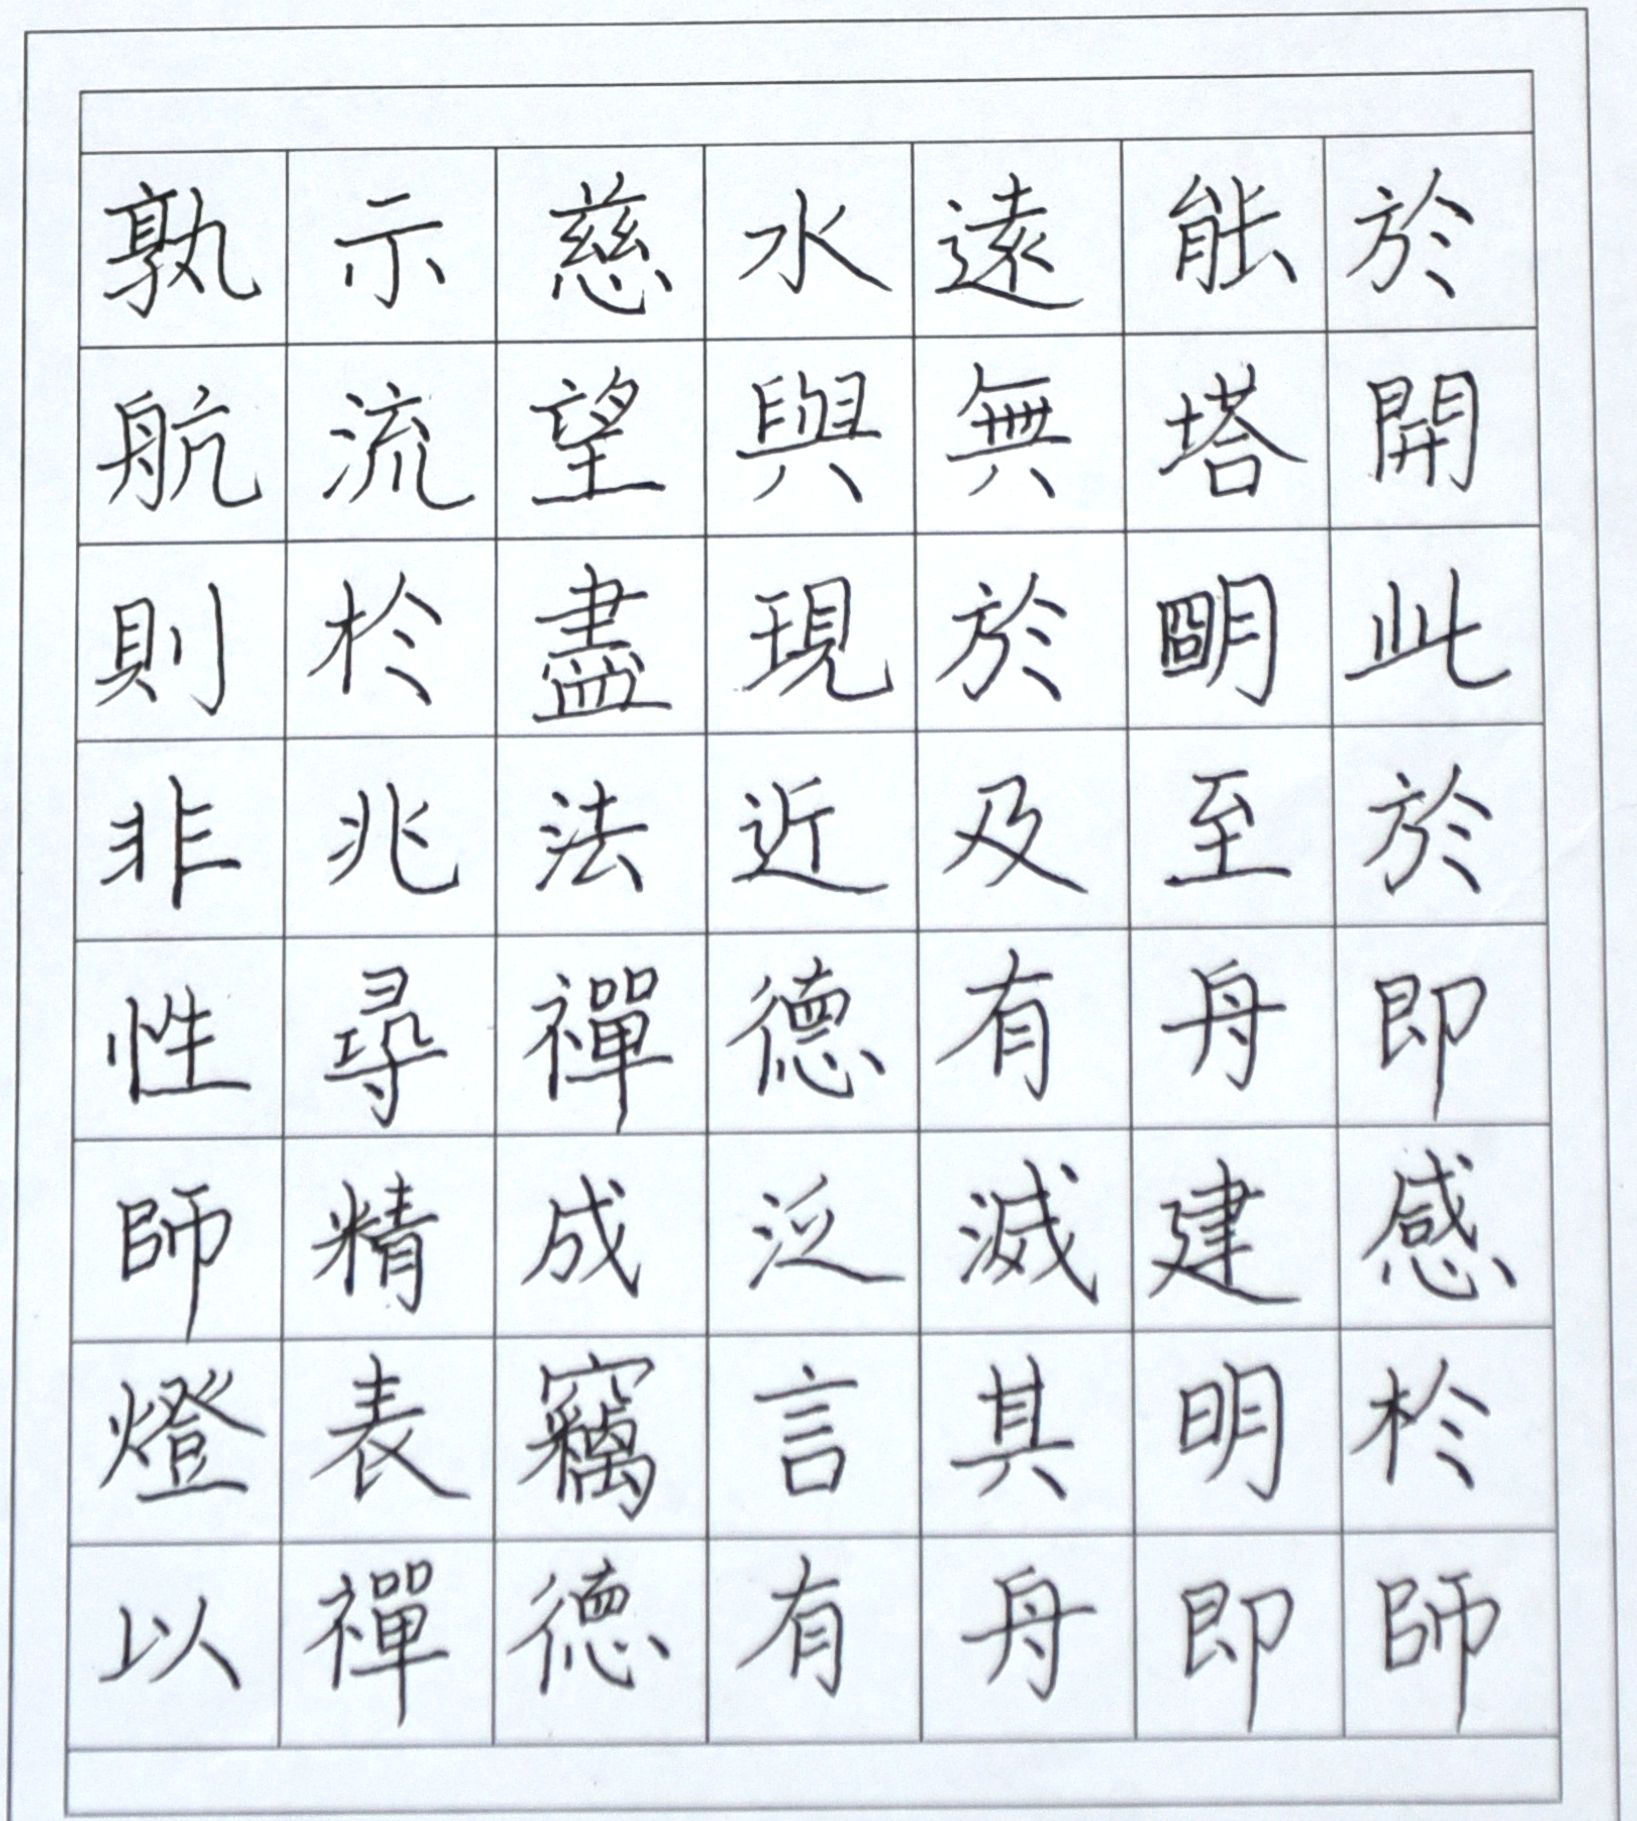 於開此於即感於師
能塔朙至舟建明即
遠無於及有滅其舟
水與現近德泛言有
慈望盡法禪成竊德
示流於兆尋精表禪
孰航則非性師燈以